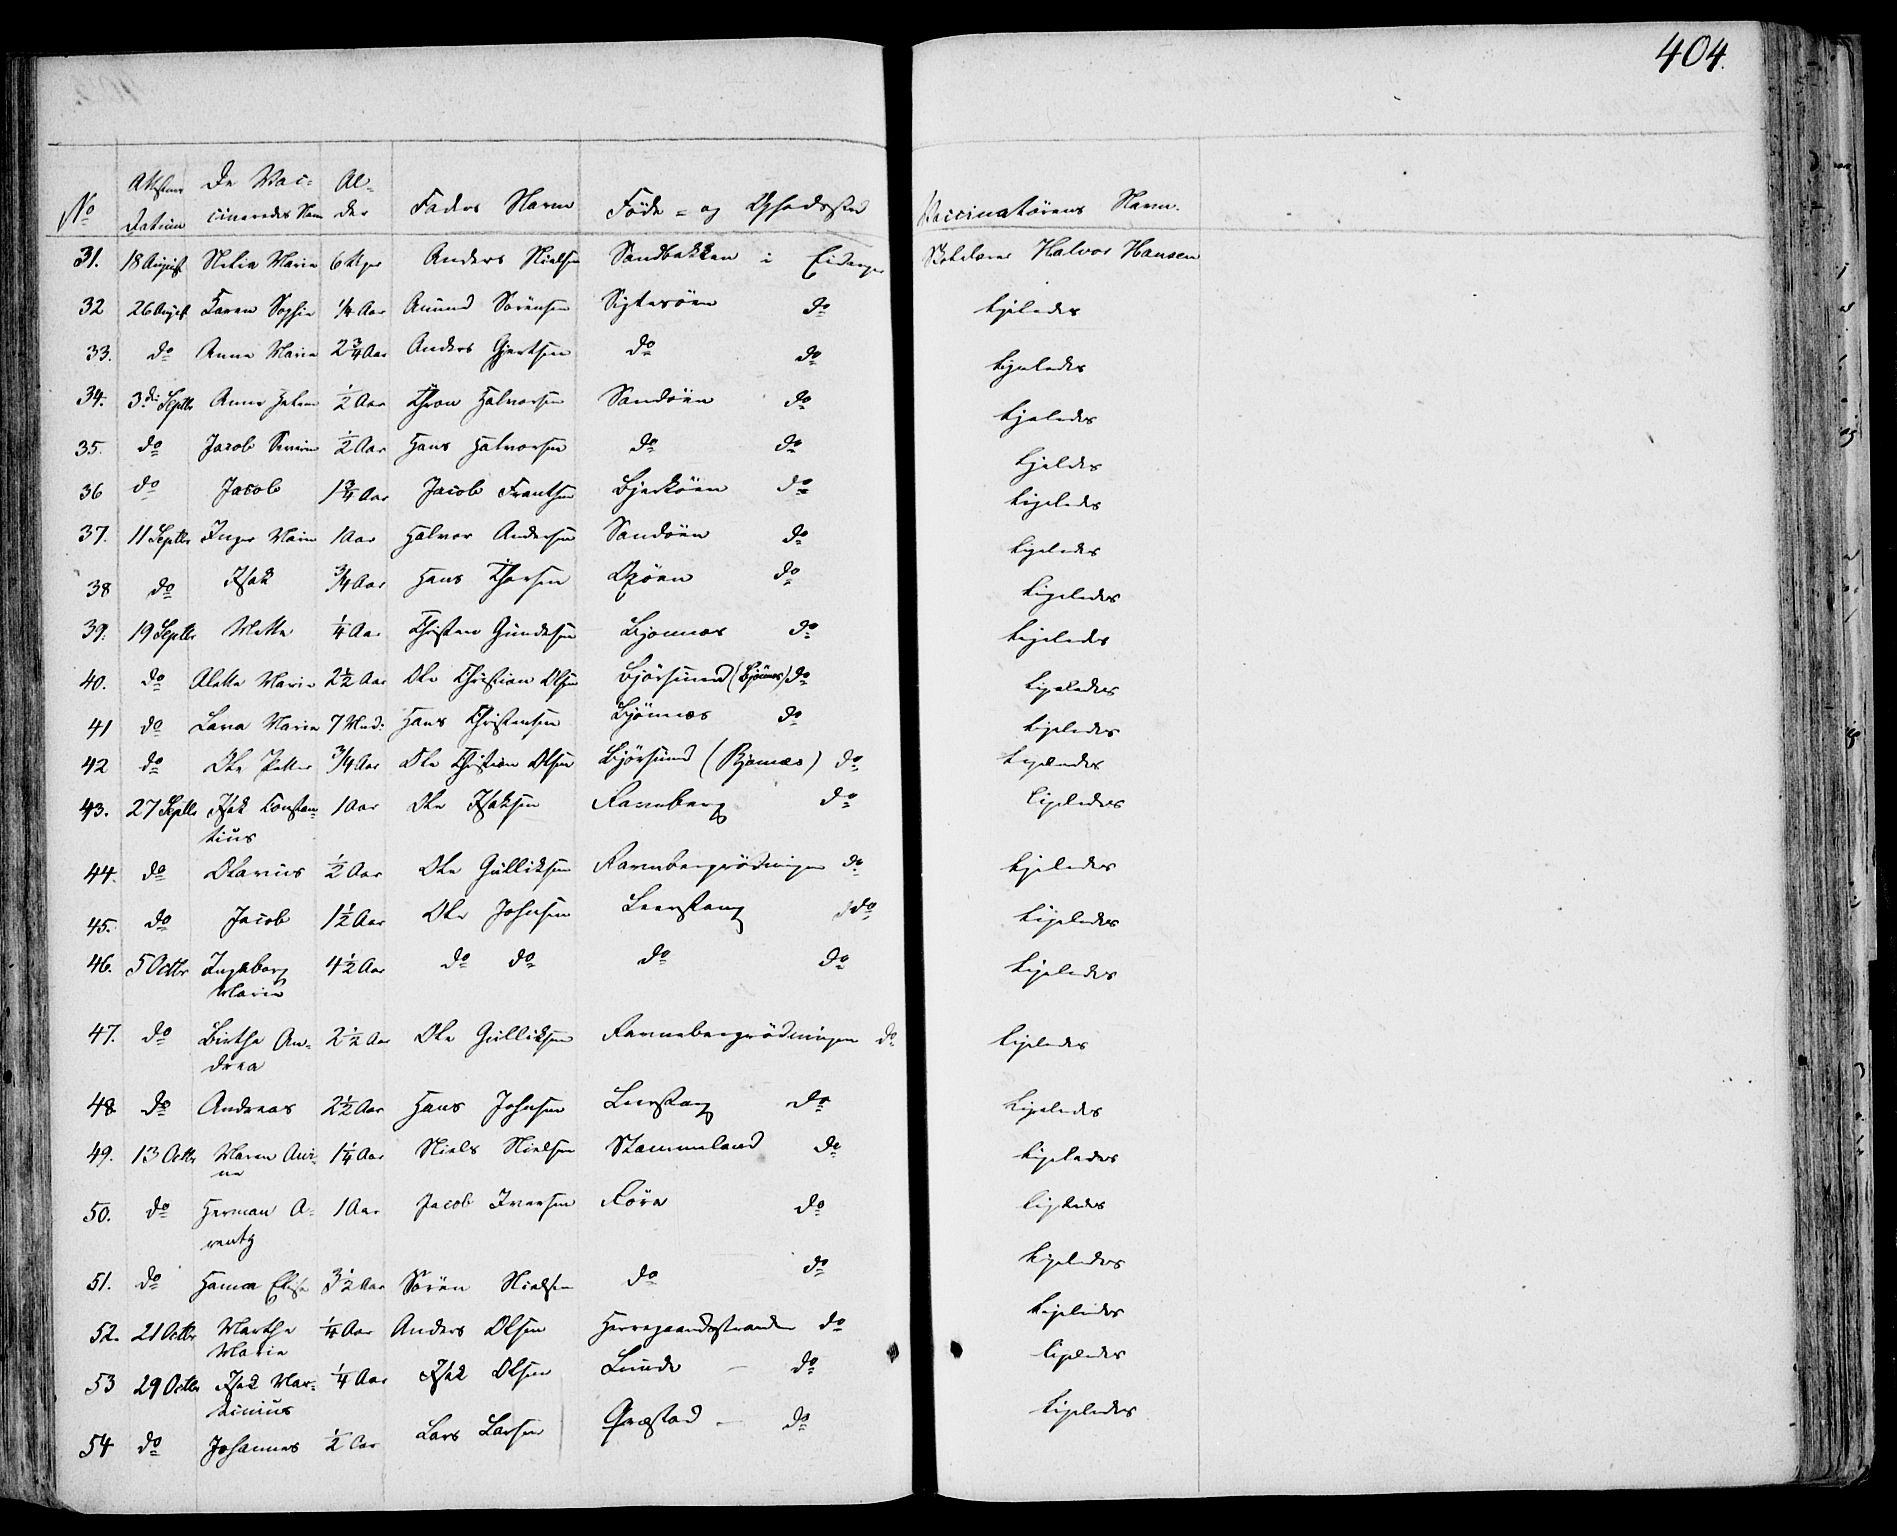 404.
No Attestens Datum De Vac- cineredes Navn Al- der Faders Navn Föde- og Opholdssted Vaccinatörens Navn.
31. 18 August Maria 6 Uger Anders Nielsen Sandbakken i Eidanger Skolelærer Halvor Hansen
32 26 August Karen Sophie 1/4 Aar Amund Sörensen Sigtesöen do ligeledes
33. do Anne Marie 2 3/4 Aar Anders Gjertsen do do ligeledes
34. 3die Septbr Anne Helene 1/2 Aar Thron Halvorsen Sandöen do ligeledes
35. do Jacob Severin 1/2 Aar Hans Halvorsen do do ligeledes
36 do Jacob 1 3/4 Aar Jacob Frantsen Bjerköen do ligeledes
37. 11 Septbr Inger Marie 1 Aar Halvor Andersen Sandöen do ligeledes
38 do Isak 3/4 Aar Hans Thorsen Oxöen do ligeledes
39. 19 Septbr Mette 1/4 Aar Christen Gundesen Bjonnes do ligeledes
40. do Alette Marie 2 1/2 Aar Ole Christian Olsen Björsund (Bjönnes) do ligeledes
41 do Lava Marie 7 Mnd: Hans Christensen Bjönnes do ligeledes
42 do Ole Petter 3/4 Aar Ole Christian Olsen Björsund (Bjonnes) do ligeledes
43. 27 Septbr Isak Constan- 1 Aar Ole Isaksen Ravneberg do ligeledes
tius
44. do Olavus 1/2 Aar Ole Gulliksen Ravnebergrödningen do ligeledes
45. do Jacob 1 1/2 Aar Ole Johnsen Leerstang do ligeledes
46. 5 Octbr Ingeborg 4 1/2 Aar do do do do ligeledes
Marie
47. do Birthe An- 2 1/2 Aar Ole Gulliksen Ravnebergrödningen do ligeledes
drea
48 do Andreas 2 1/2 Aar Hans Johnsen Leerstang do ligeledes
49. 13 Octbr Maren Ani- 1 1/4 Aar Niels Nielsen Stammeland do ligeledes
ne
50. do Herman A- 1 Aar Jacob Iversen Röra do ligeledes
rentz
51. do Hanna Elise 3 1/2 Aar Sören Nielsen do do ligeledes
52. 21 Octbr Marthe 1/4 Aar Anders Olsen Herregaardsstranden do ligeledes
Marie
53 29 Octbr Isak Mar- 1/4 Aar Isak Olsen Lunde - do ligeledes
tinius
54 do Johannes 1/2 Aar Lars Larsen Qvæstad - do ligeledes